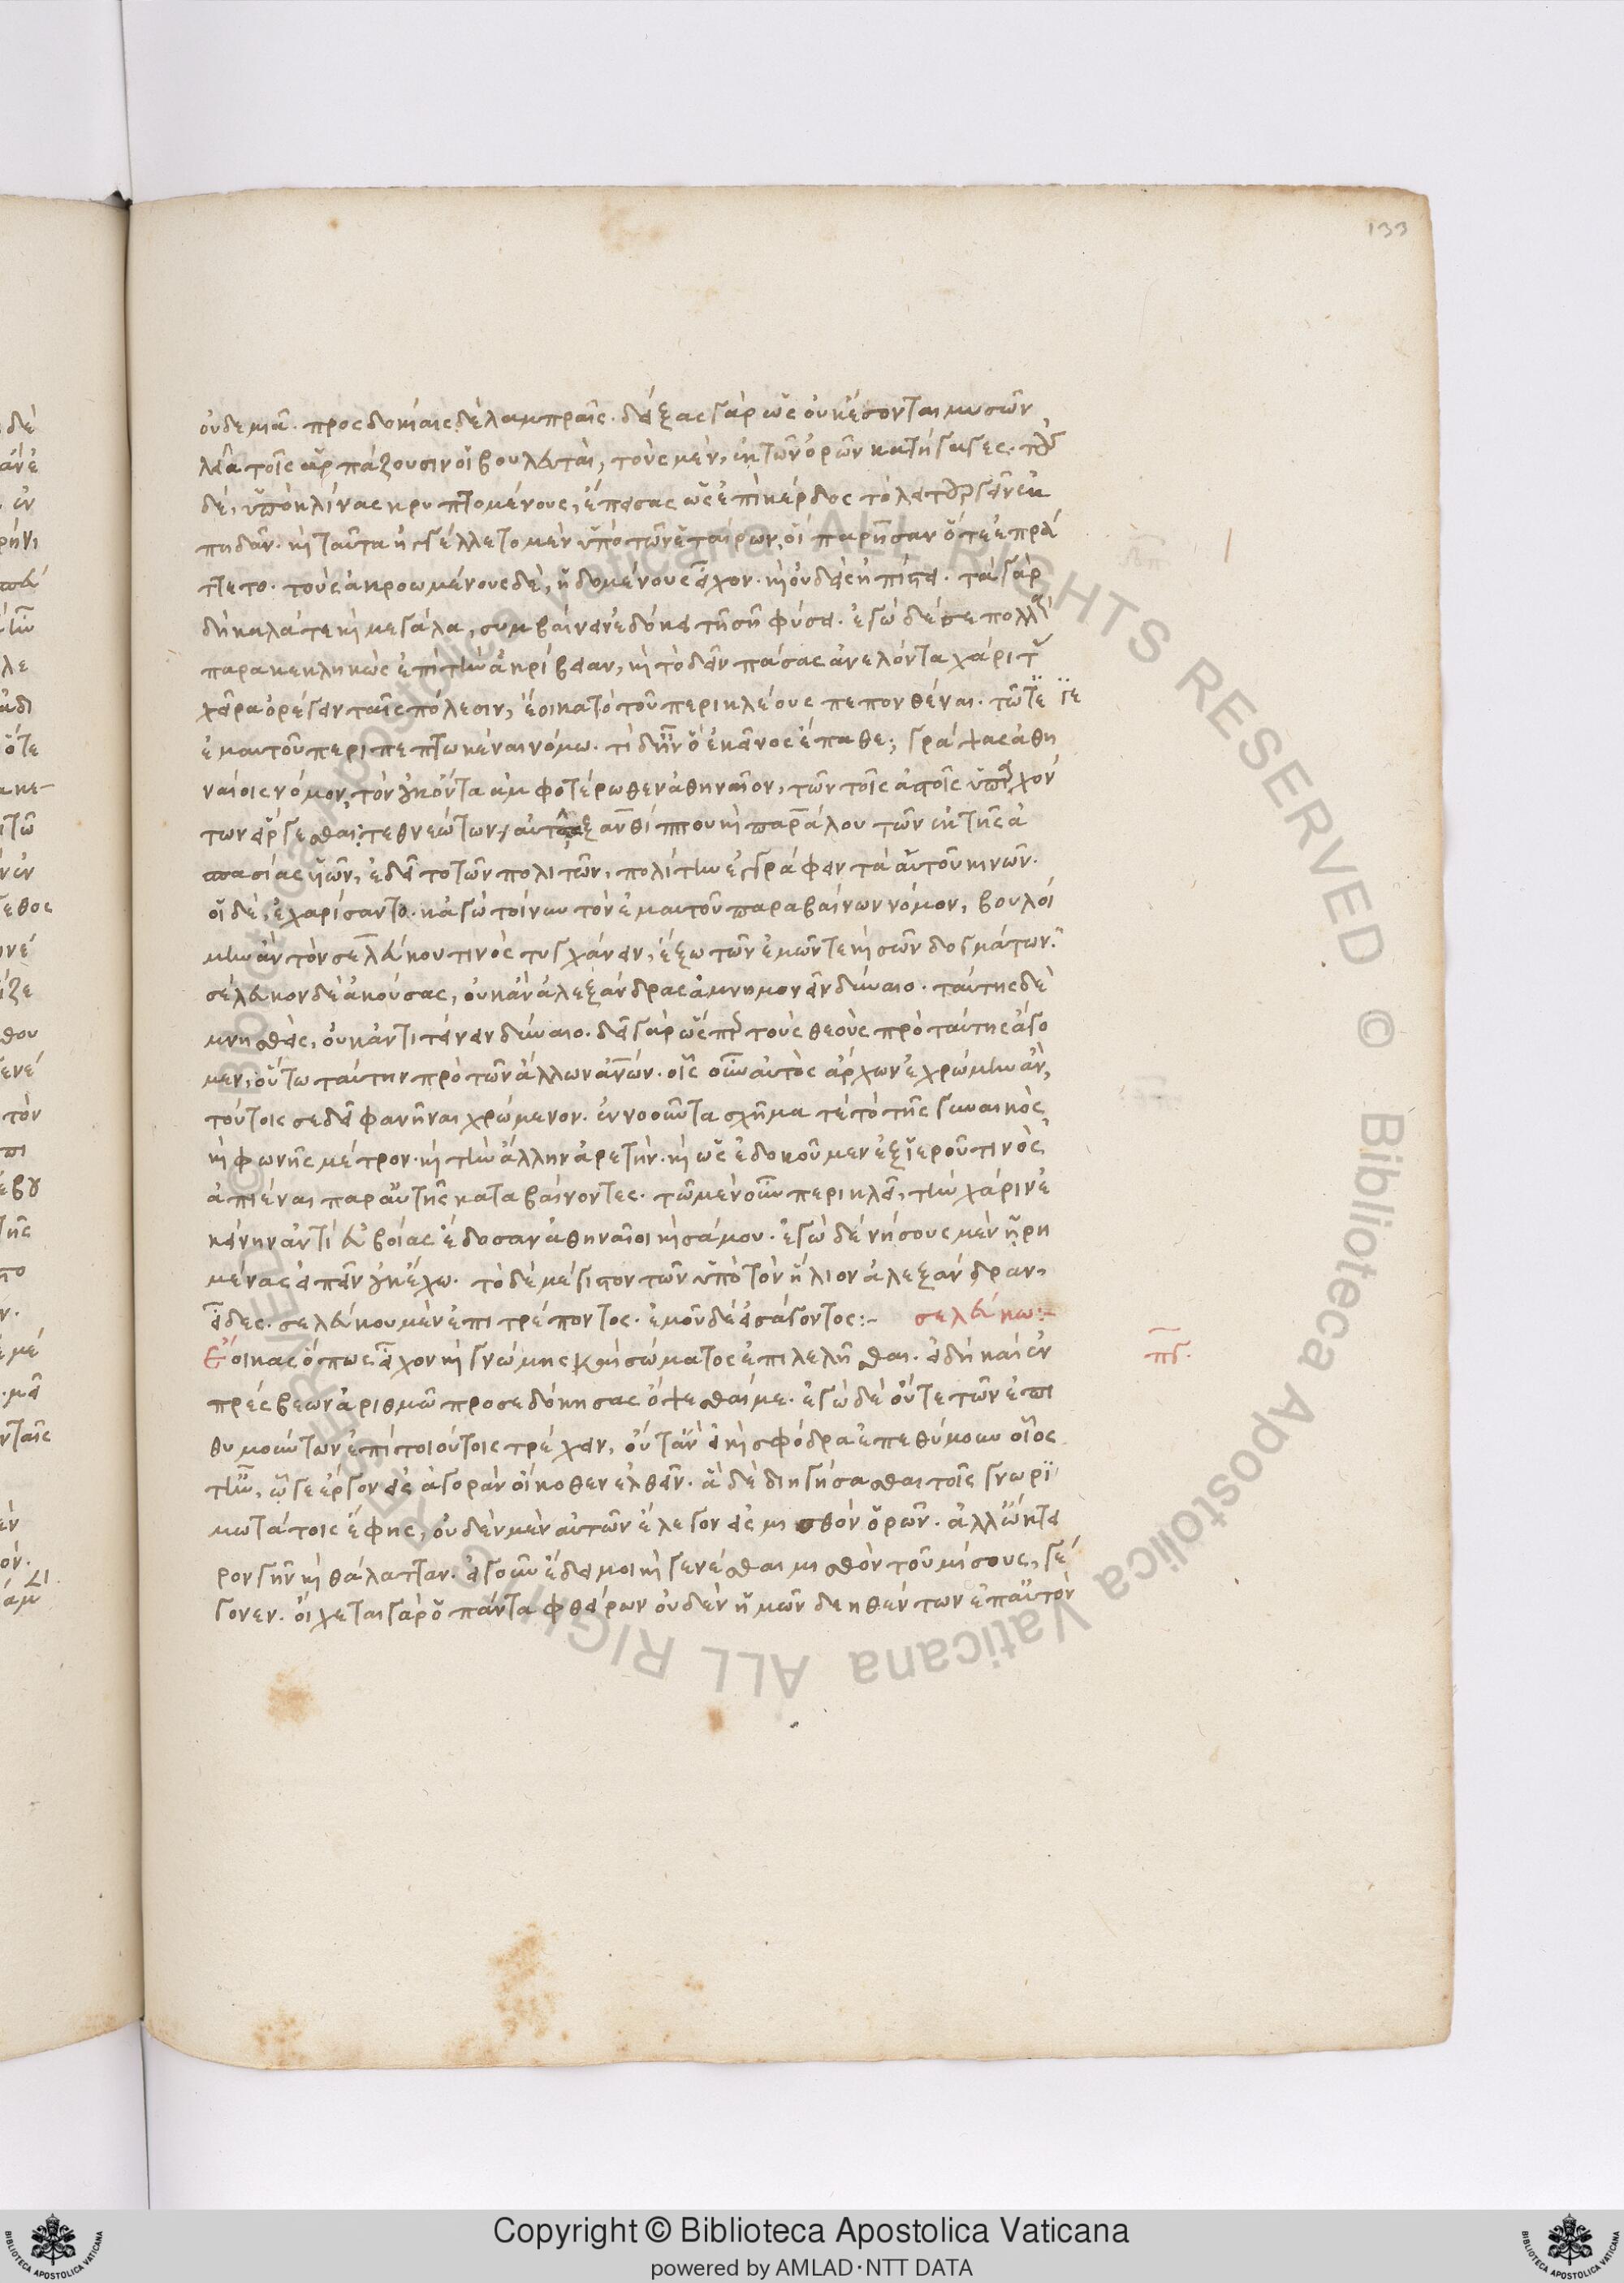 133
οὐδεμιᾶ. προσδοκίαις δὲ λαμπραῖς. δείξας γὰρ ὡς οὐκ ἔσονται μυσῶν
λεία τοῖς ἁρπάζουσιν οἱ βουλευταὶ, τοὺς μὲν, ἐκ τῶν ὀρῶν κατήγαγες. τοὺς
δὲ, ὑποκλίνας κρυπτομένους, ἔπεισας ὡς ἐπὶ κέρδος τὸ λειτουργεῖν ἐκ
πηδᾶν. καὶ ταῦτα ἠγγέλλετο μὲν ὑπὸ τῶν ἑταίρων, οἳ παρῆσαν ὅτε ἐπράτ
τετο. τοὺς ἀκροωμένους δὲ, ἡδομένους εἶχον. καὶ οὐδεὶς ἠπίστει. τὰ γὰρ
δὴ καλά τε καὶ μεγάλα, συμβαίνειν ἐδόκει τῇ σῇ φύσει. ἐγὼ δέ σε πολλοὺς
παρακεκληκὼς ἐπὶ τὴν ἀκρίβειαν, καὶ τὸ δεῖν πάσας ἀνελόντα χάριτας
χεῖρα ὀρέγειν ταῖς πόλεσιν, ἔοικα τὸ τοῦ περικλέους πεπονθέναι. τῶ τε γε
ἐμαυτοῦ περιπεπτωκέναι νόμω. τί δὴ ἦν ὃ ἐκεῖνος ἔπαθε; γράψας ἀθη
ναίοις νόμον, τὸν ἥκοντα ἀμφοτέρωθεν ἀθηναῖον, τῶν τοῖς ἀστοῖς ὑπαρχόν
των εἴργεσθαι: τεθνεώτων αὐτῶ ξανθίππου καὶ παράλου τῶν ἐκ τῆς ἀ
σπασίας υἱῶν, ἐδεῖτο τῶν πολιτῶν, πολίτην ἐγγράφειν τὰ αὑτοῦ κινῶν.
οἱ δὲ, ἐχαρίσαντο. κἀγὼ τοίνυν τὸν ἐμαυτοῦ παραβαίνων νόμον, βουλοί
μην ἂν τὸν σελεύκου τινὸς τυγχάνειν, ἔξω τῶν ἐμῶν τε καὶ σῶν δογμάτων.
σέλευκον δὲ ἀκούσας, οὐκ ἂν ἀλεξάνδρας ἀμνημονεῖν δύναιο. ταύτης δὲ
μνησθεὶς, οὐκ ἀντιτείνειν δύναιο. δεῖ γὰρ ὥσπερ τοὺς θεοὺς πρὸ ταύτης ἄγο
μεν, οὕτω ταύτην πρὸ τῶν ἄλλων ἀνῶν. οἷς οὖν αὐτὸς ἄρχων ἐχρώμην ἂν,
τούτοις σε δεῖ φανῆναι χρώμενον. ἐννοοῦντα σχῆμα τέ τὸ τῆς γυναικὸς
καὶ φωνῆς μέτρον. καὶ τὴν ἄλλην ἀρετήν. καὶ ὡς ἐδοκοῦμεν ἐξ ἱεροῦ τινὸς
ἀπιέναι παρ αὐτῆς καταβαίνοντες. τῶ μὲν οὖν περικλεῖ, τὴν χάριν ἐ
κείνην ἀντὶ εὐβοίας ἔδοσαν ἀθηναῖοι καὶ σάμου. ἐγὼ δὲ νήσους μὲν ᾑρη
μένας εἰπεῖν οὐκ ἔχω. τὸ δὲ μέγιστον τῶν ὑπὸ τὸν ἥλιον ἀλεξάνδραν,
εἶδες. σελεύκου μὲν ἐπιτρέποντος. ἐμοῦ δὲ εἰσάγοντος:- σελεύκω:-
Ἔοικας ὅπως εἶχον καὶ γνώμης καὶ σώματος ἐπιλελῆσθαι. εἰ δὴ καὶ ἐν
πρέσβεων ἀριθμῶ προσεδόκησας ὄψεσθαί με. ἐγὼ δὲ οὔτε τῶν ἐπι
θυμούντων ἐπὶ τοιούτοις τρέχειν, οὔτ ἂν εἰ καὶ σφόδρα ἐπεθύμουν οἷός
τ ἦν, ᾧ γε ἔργον εἰς ἀγορὰν οἴκοθεν ἐλθεῖν. ἃ δὲ διηγήσασθαι τοῖς γνωρι
μωτάτοις ἔφης, οὐδὲν μὲν αὐτῶν ἔλεγον εἰς μισθὸν ὁρῶν. ἀλλ ᾤκτει
ρον γῆν καὶ θάλατταν. εἰ γοῦν ἔδει μοι καὶ γενέσθαι μισθὸν τοῦ μίσους, γέ
γονεν. οἴχεται γὰρ ὁ πάντα φθείρων οὐδὲν ἡμῶν δεηθέντων ἐπ αὐτὸν
πγ.
Copyright © Biblioteca Apostolica Vaticana
powered by AMLAD·NTT DATA